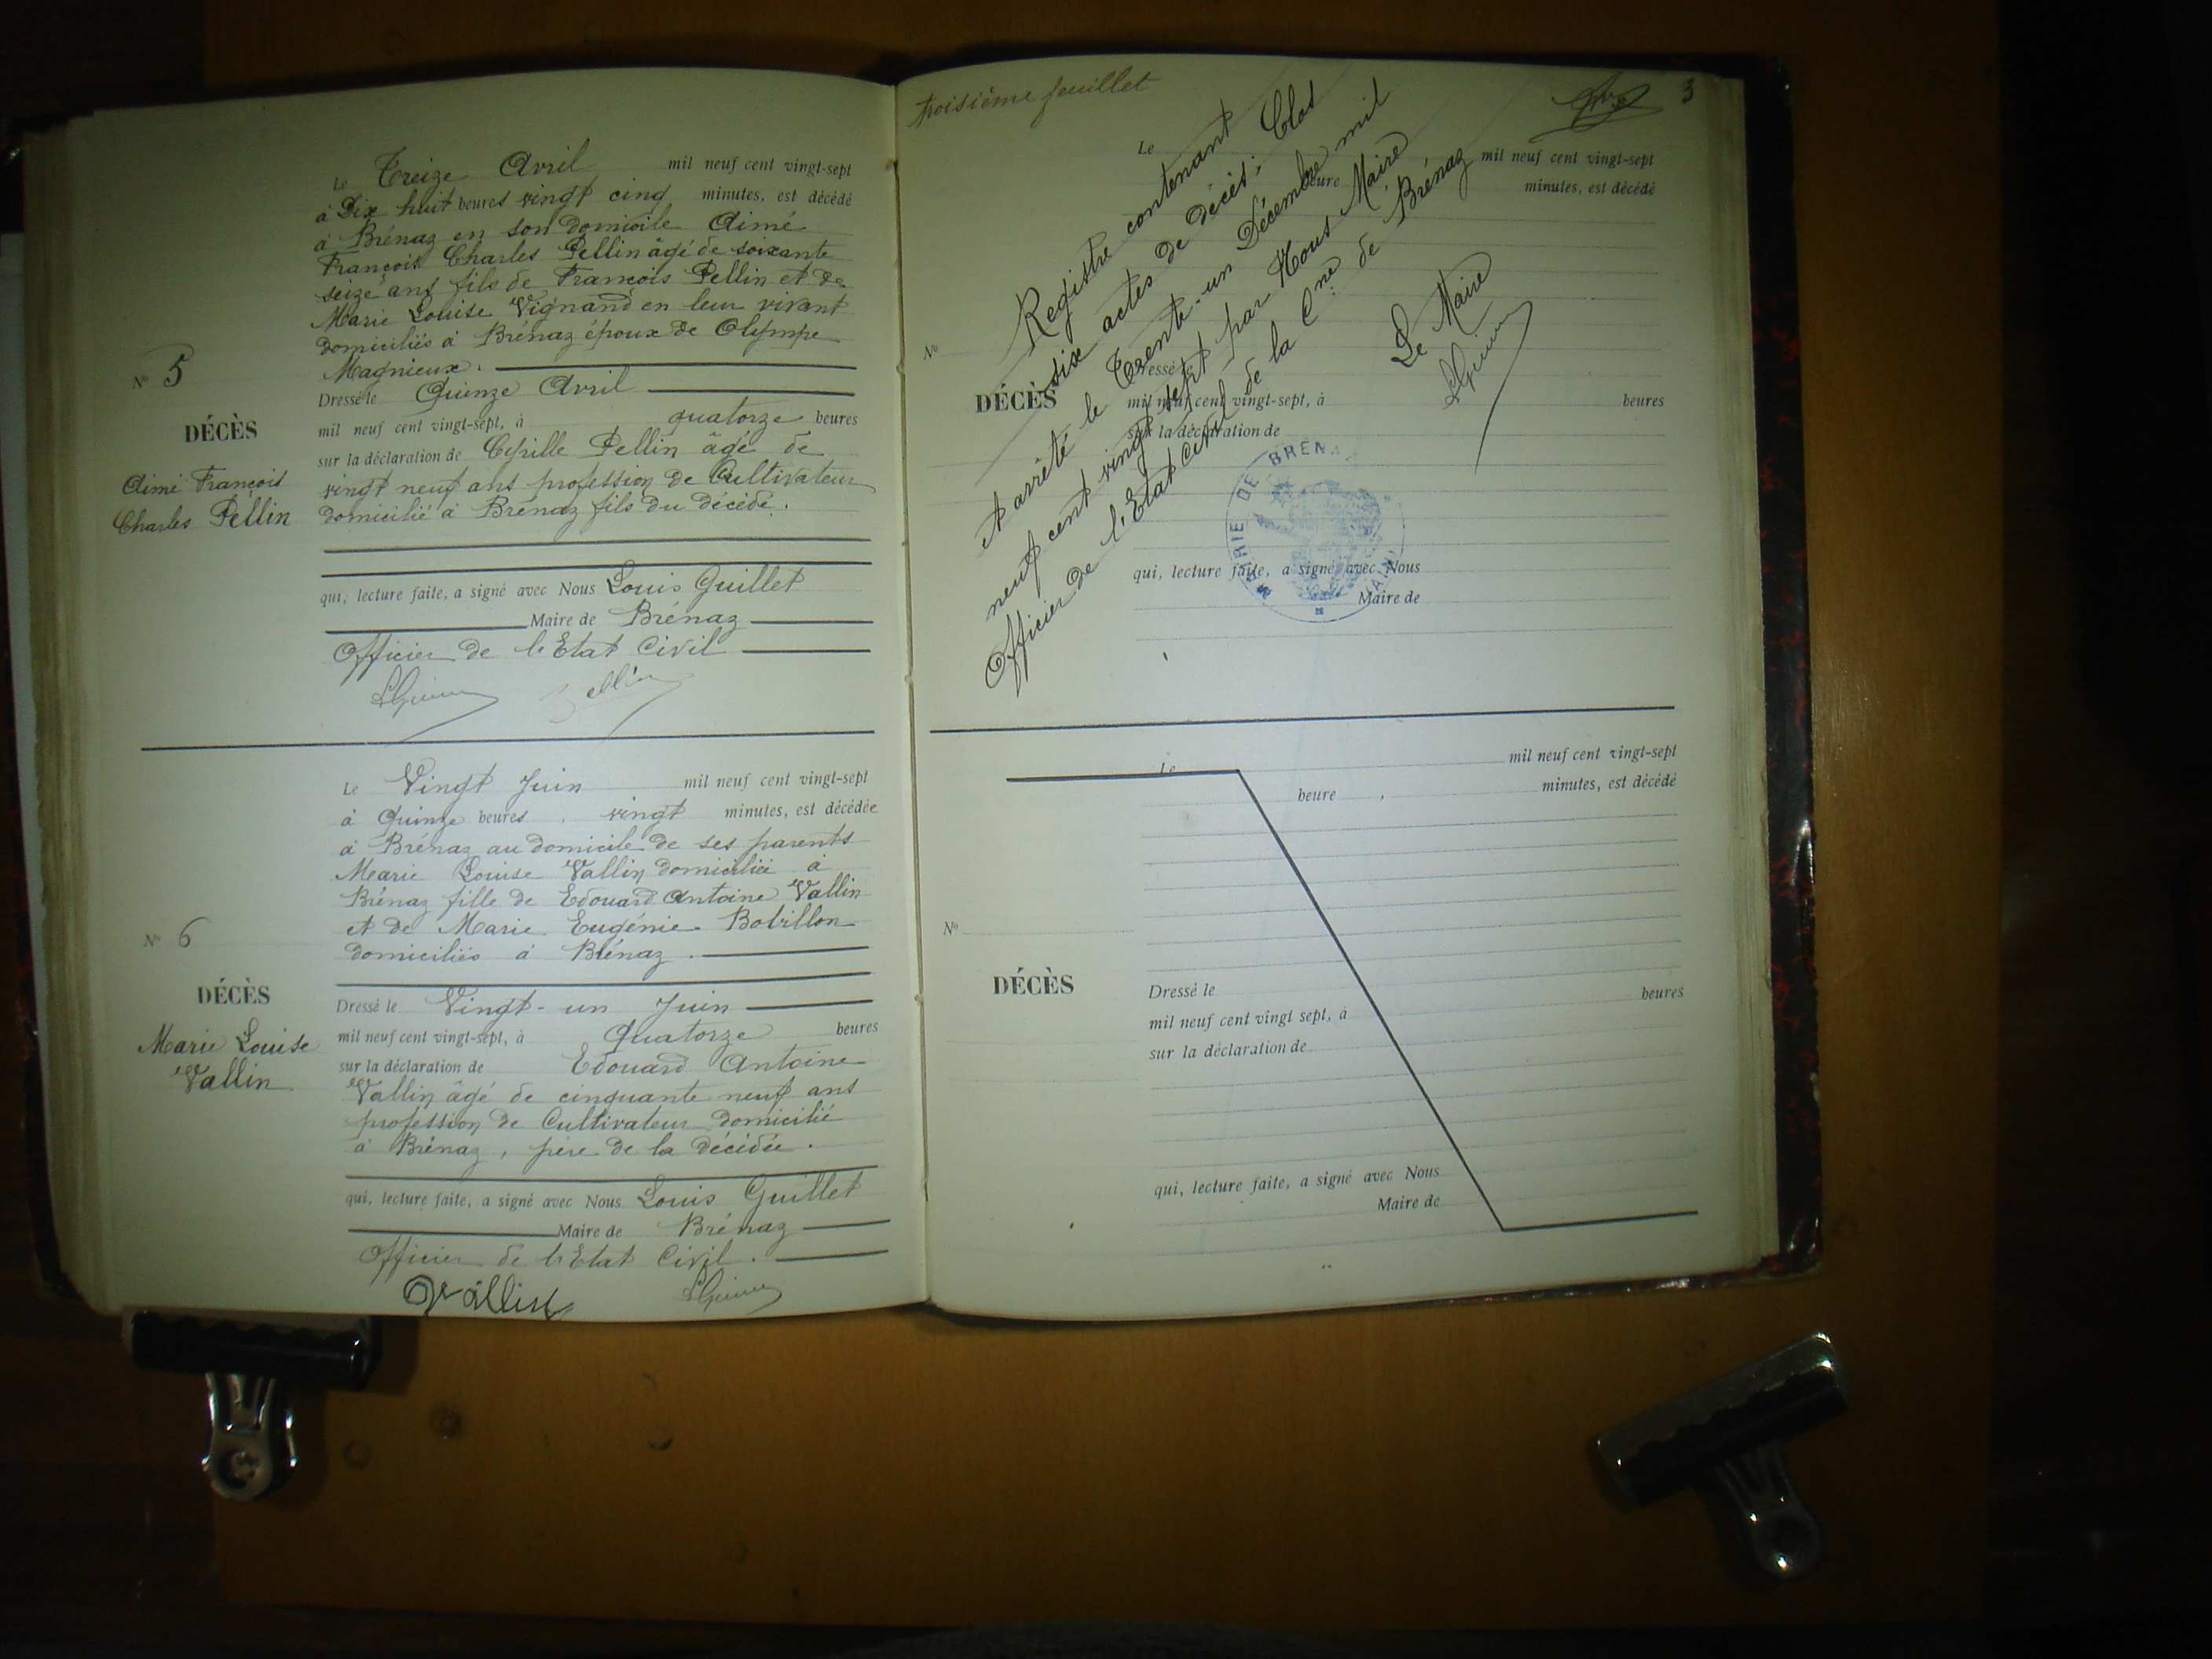 Le Treize Avril mil neuf cent vingt-sept
à Dix huit heures vingt cinq minutes, est décédé
à Brénaz en son domicile Aimé
François Charles Pellin âgé de soixante
seize ans fils de François Pellin et de
Marie Louise Vignand en leur vivant
domiciliés à Brénaz époux de Olympe
Magnieux.
N° 5
DÉCÈS
Aimé François
Charles Pellin
Dressé le Quinze Avril
mil neuf cent vingt-sept, à quatorze heures
sur la déclaration de Cyrille Pellin âgé de
vingt neuf ans profession de Cultivateur
domicilié à Brénaz fils du décédé.
qui, lecture faite, a signé avec Nous Louis Guillet
Maire de Brénaz
Officier de l'Etat Civil
Pellin
Le Vingt Juin mil neuf cent vingt-sept
à Quinze heures, vingt minutes, est décédée
à Brénaz au domicile de ses parents
Marie Louise Vallin domiciliée à
Brénaz fille de Edouard Antoine Vallin
et de Marie Eugénie Bobillon
domiciliés à Brénaz.
N° 6
DÉCÈS
Marie Louise
Vallin
Dressé le Vingt-un Juin
mil neuf cent vingt-sept, à Quatorze heures
sur la déclaration de Edouard Antoine
Vallin âgé de cinquante neuf ans
profession de Cultivateur domicilié
à Brénaz, père de la décédée.
qui, lecture faite, a signé avec Nous Louis Guillet
Maire de Brénaz
Officier de l'Etat Civil.
Vallin
troisième feuillet
3
Le mil neuf cent vingt-sept
heure minutes, est décédé
Registre contenant
six actes de décès; Clos
et arrêté le Trente-un Décembre mil
neuf cent vingt sept par Nous Maire
Officier de l'Etat Civil de la Cne de Brénaz
Le Maire
N°
DÉCÈS
Dressé le
mil neuf cent vingt-sept, à heures
sur la déclaration de
MAIRIE DE BRENAZ
AIN
qui, lecture faite, a signé avec Nous
Maire de
Le mil neuf cent vingt-sept
heure , minutes, est décédé
N°
DÉCÈS
Dressé le heures
mil neuf cent vingt sept, à
sur la déclaration de
qui, lecture faite, a signé avec Nous
Maire de